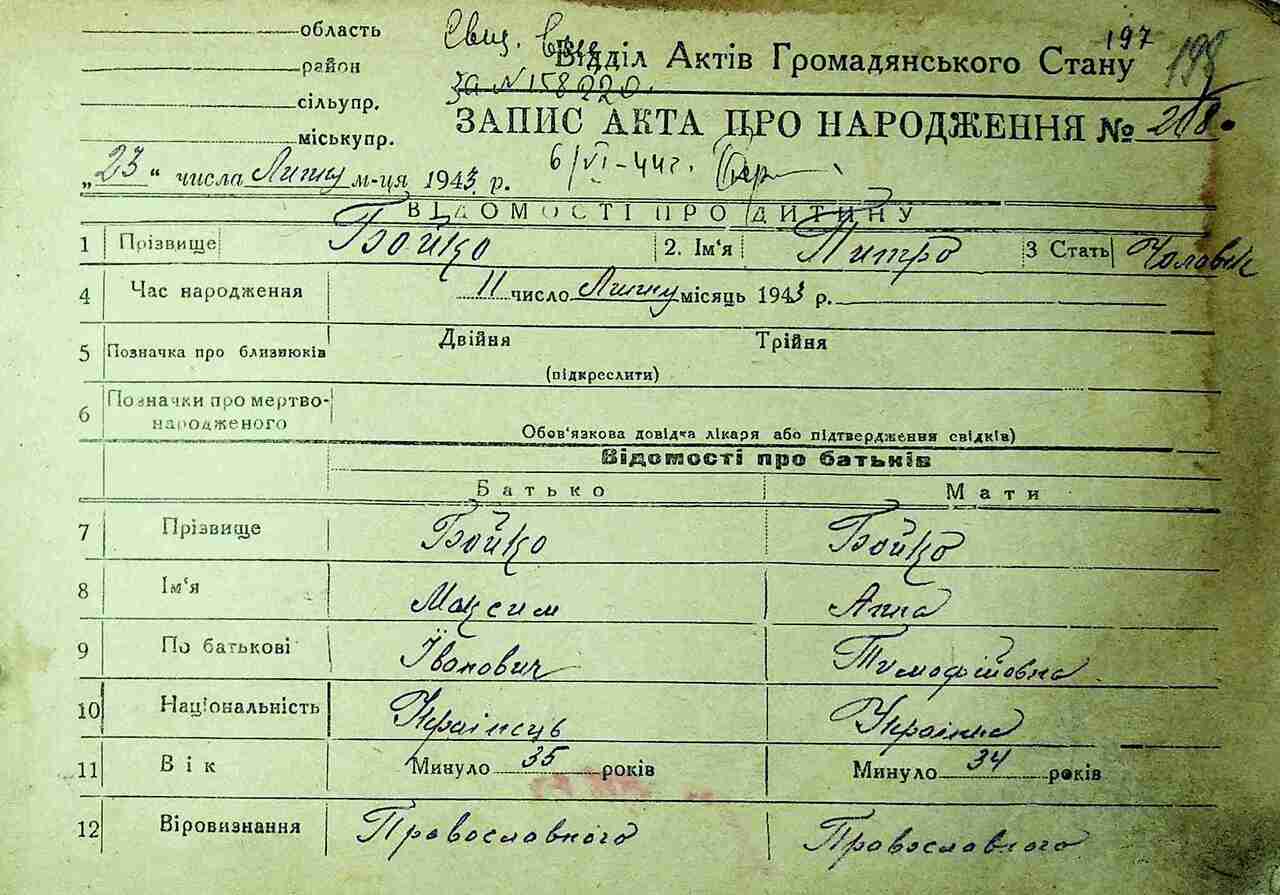 область
район
сільупр.
міськупр.
197
198
Відділ Актів Громадянського Стану
за № 158220.
ЗАПИС АКТА ПРО НАРОДЖЕННЯ № 208
„23“ числа Липня м-ця 1943 р.
6/VI-44г.
ВІДОМОСТІ ПРО ДИТИНУ
1 Прізвище Бойко 2. Ім'я Митро 3 Стать Чоловік
4 Час народження 11 число Липня місяць 1943 р.
5 Позначка про близнюків Двійня Трійня
(підкреслити)
6 Позначки про мертво-
народженого
Обов'язкова довідка лікаря або підтвердження свідків)
Відомості про батьків
Батько Мати
7 Прізвище Бойко Бойко
8 Ім'я Максим Анна
9 По батькові Іванович Тимофіївна
10 Національність Українець Українка
11 Вік Минуло 35 років Минуло 34 років
12 Віровизнання Православного Православного